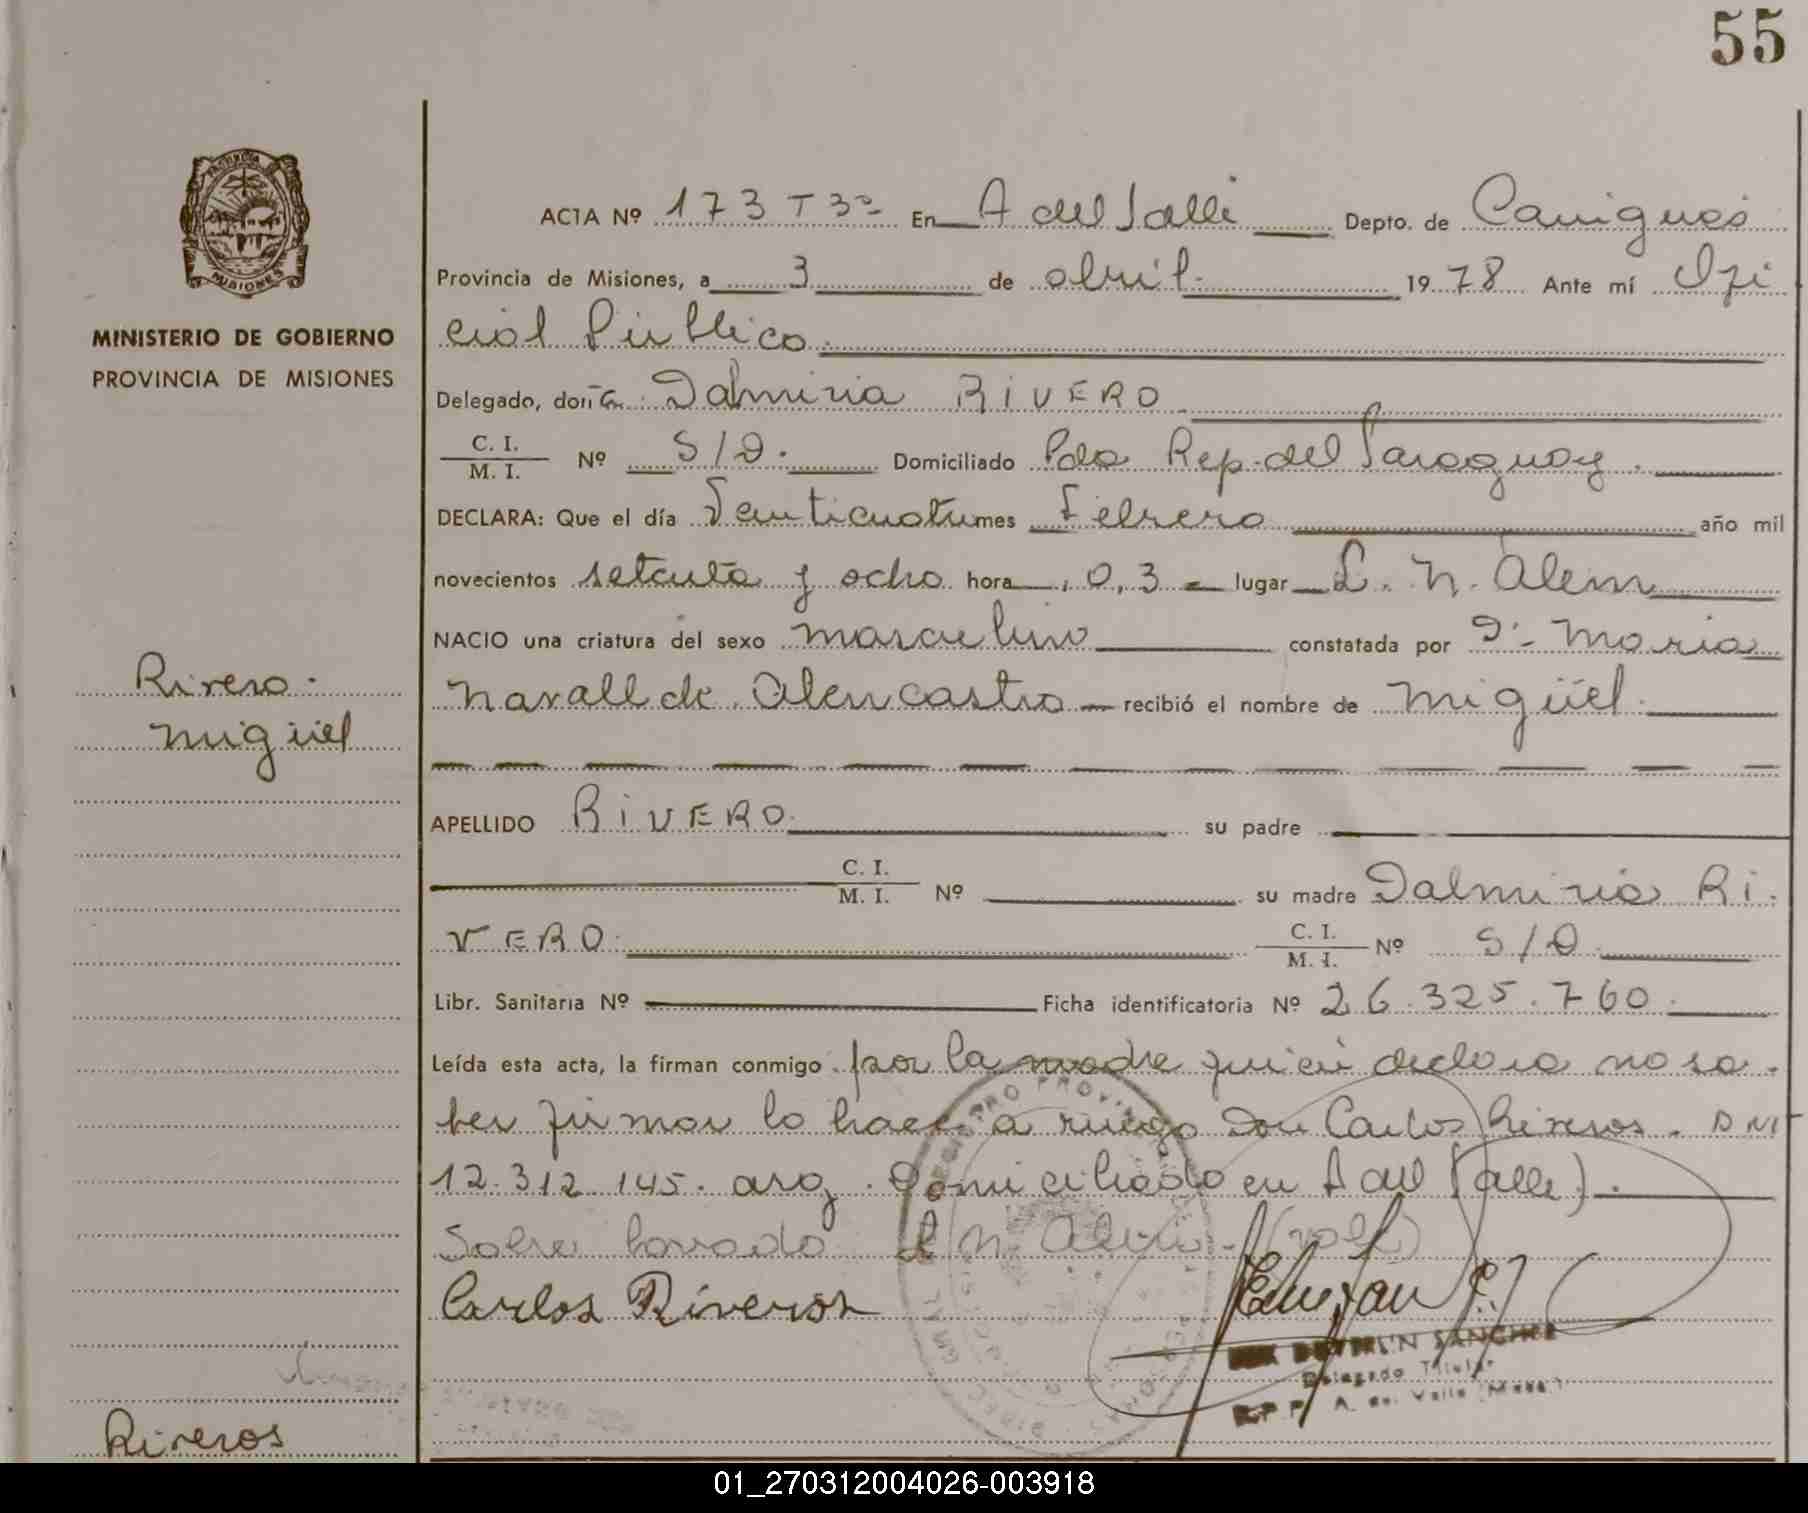 55
PROVINCIA DE
MISIONES
MINISTERIO DE GOBIERNO
PROVINCIA DE MISIONES
ACTA Nº 173 T 3º En A del Valle Depto. de Cainguas
Provincia de Misiones, a 3 de abril 1978 Ante mí Ofi
cial Público
Delegado, doña Dalmiria RIVERO
C. I.
M. I. Nº S/D. Domiciliado Pdo Rep. del Paraguay.
DECLARA: Que el día Veinticuatro mes Febrero año mil
novecientos setenta y ocho hora 0,3 lugar L. N. Alem
NACIO una criatura del sexo masculino constatada por Dª Maria
Narall de Alencastro recibió el nombre de Migüel.
Rivero.
Migüel
APELLIDO RIVERO. su padre
C. I.
M. I. Nº su madre Dalmiria RI.
VERO. C. I.
M. I. Nº S/D.
Libr. Sanitaria Nº Ficha identificatoria Nº 26.325.760.
Leída esta acta, la firman conmigo por la madre quien declara no sa.
ber firmar lo hace a ruego Don Carlos Riveros. DNI
12.312.145. arg. Domiciliado en A del Valle).
Sobre borrado L N. Alem. (vale)
Carlos Riveros
SANCHEZ
Delegado Titular
R.P.P. A. del Valle (Mnes.)
Riveros
01_270312004026-003918